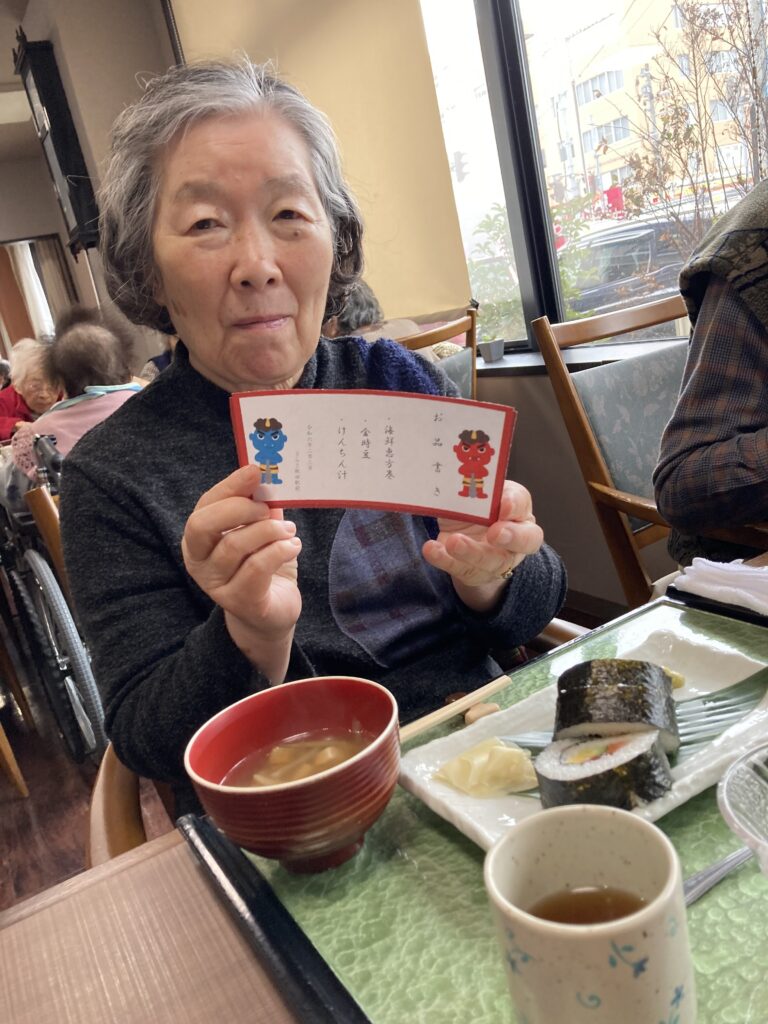 お品書き
・海鮮恵方巻
・金時豆
・けんちん汁